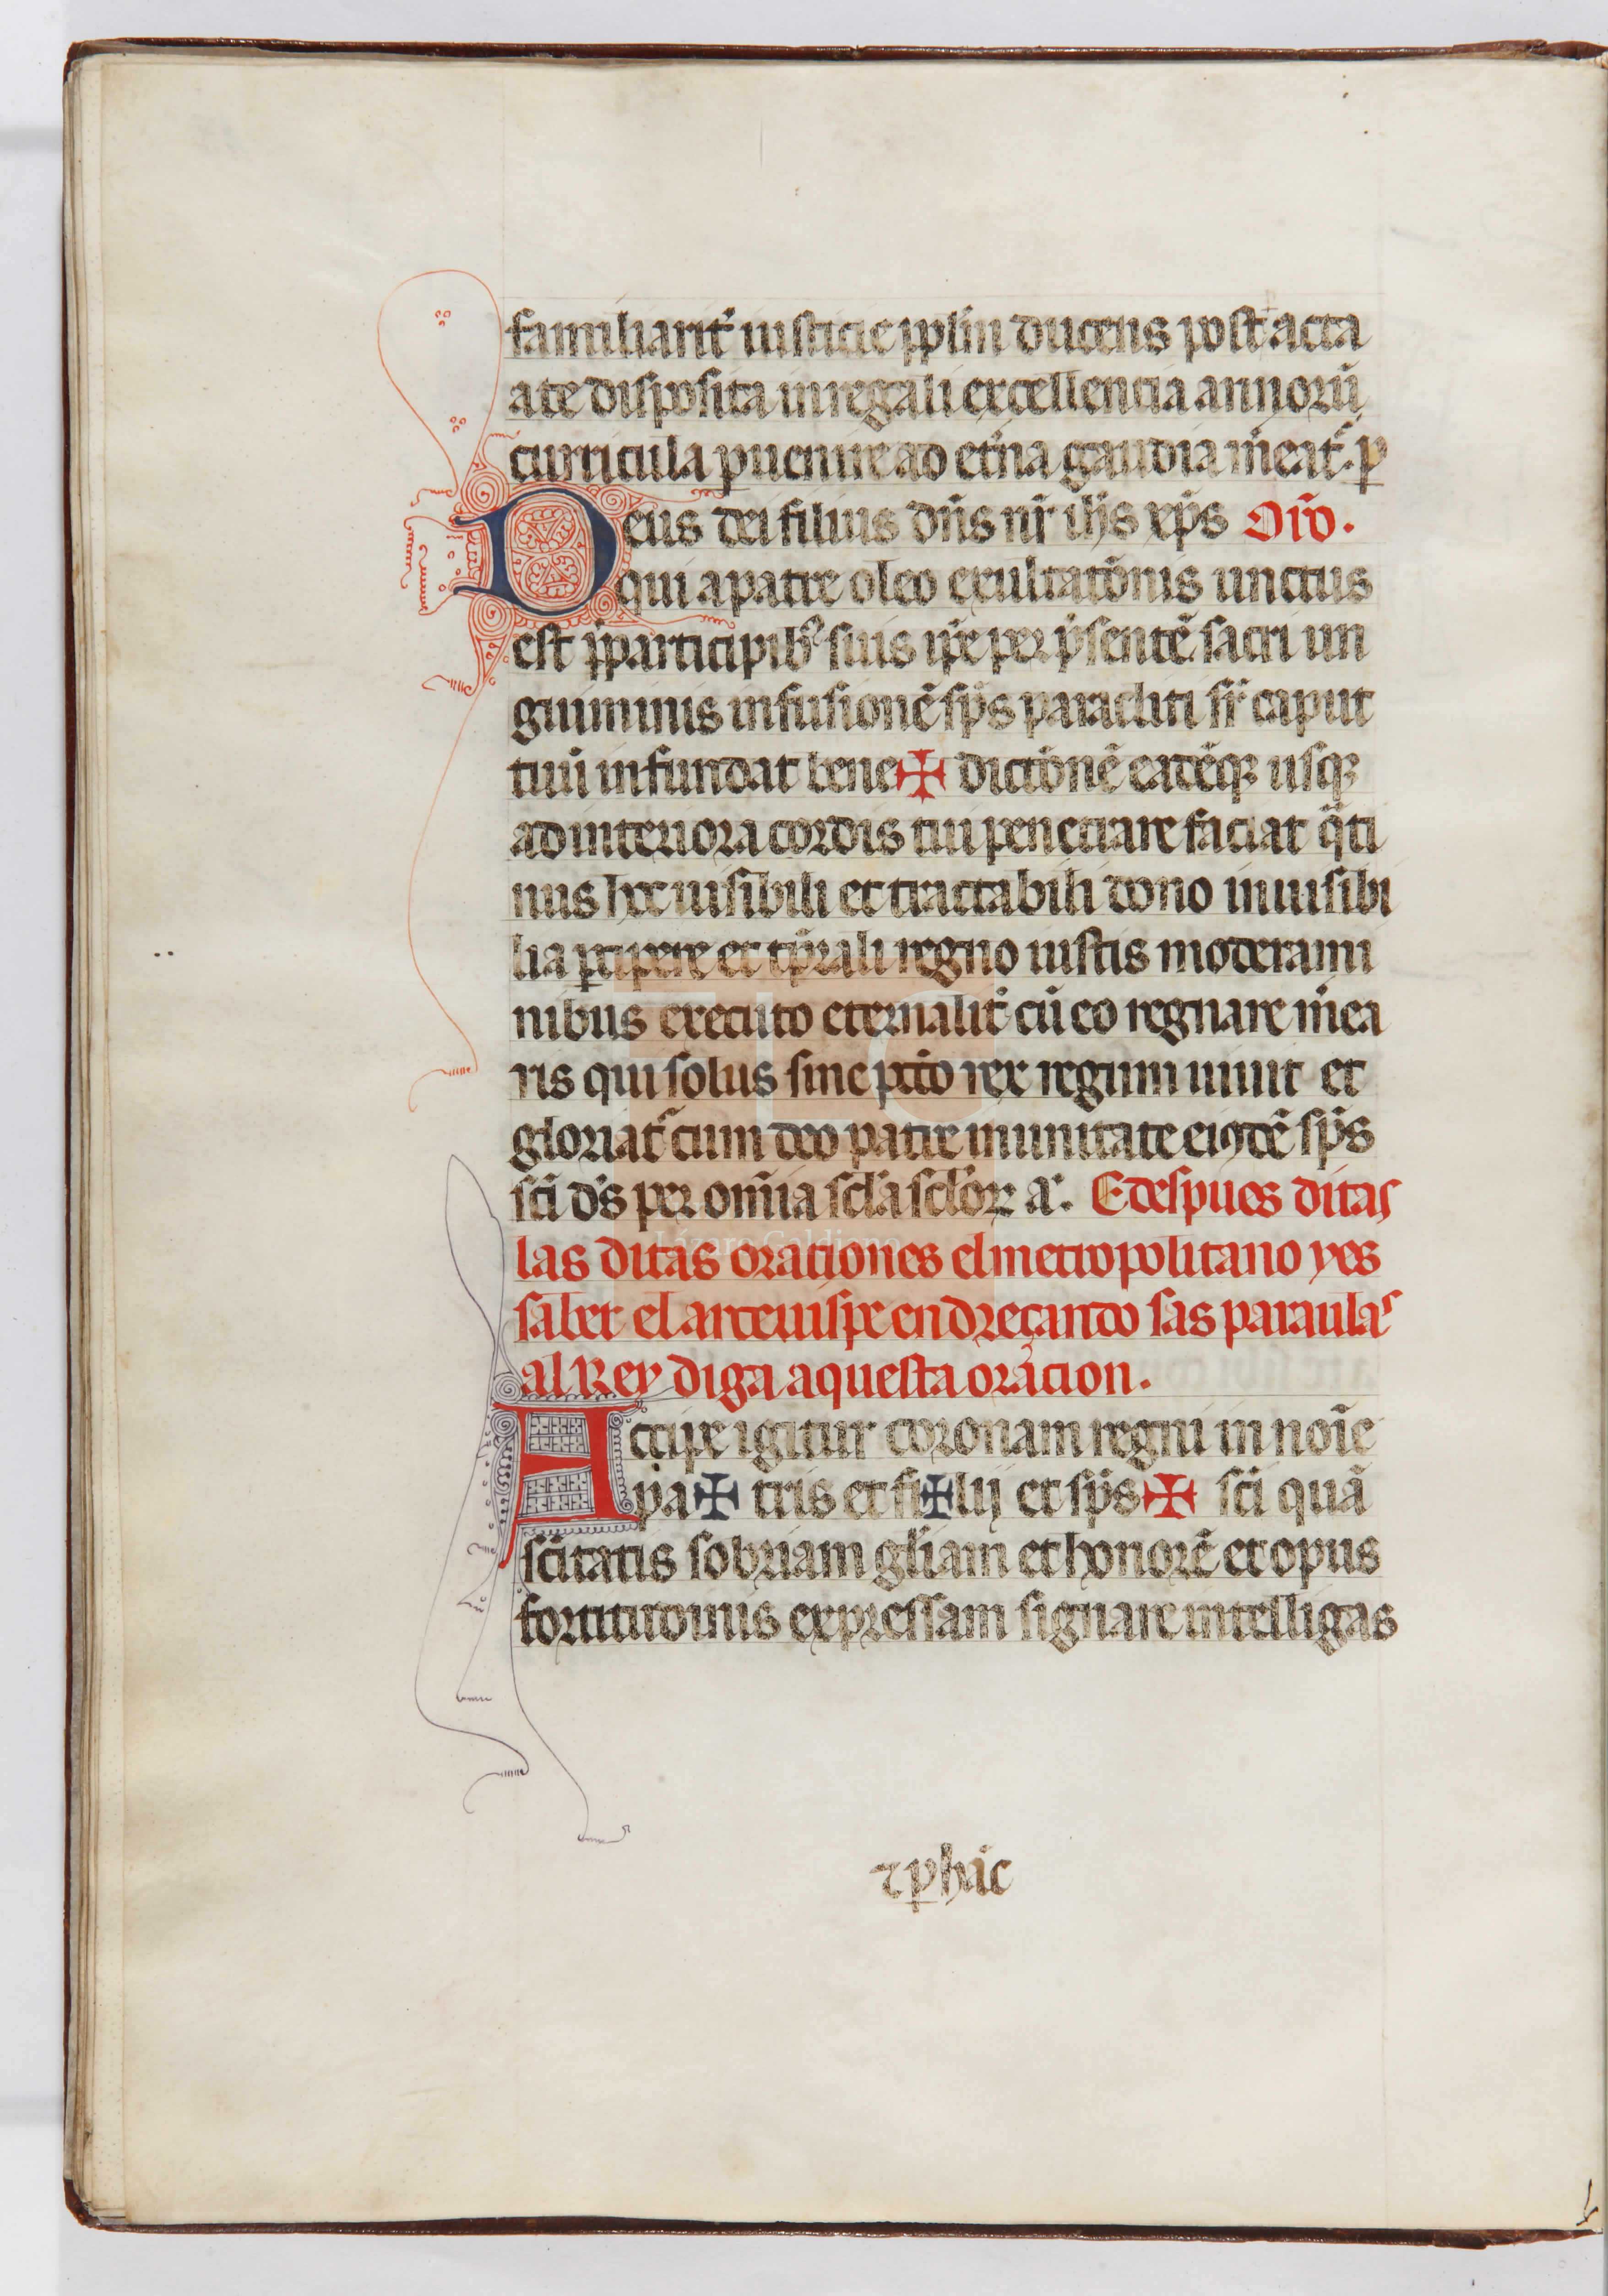 familiarit᷑ iusticie pplm̄ ducens post acta
a te disposita in regali excellencia annoꝝ̄
curricula puenire ad et̄na gaudia m̄eat᷑. ꝑ
Deus dei filius dn̄s nr̄ ih̄s xp̄s Oīo.
qui a patre oleo exultatōnis unctus
est p̄ participibꝰ suis ip̄e per p̄sentē sacri un
guiminis infusionē sp̄s paracliti sr̄ caput
tuū infundat bene✠ dictōnē eādēqꝫ usqꝫ
ad interiora cordis tui penetrare faciat q̄ti
nus hoc uisibili et tractabili dono inuisibi
lia ꝑcipere et tp̄rali regno iustis moderami
nibus executo eternalit᷑ cū eo regnare m̄ea
ris qui solus sine pctō rex regum uiuit et
gloriat᷑ cum deo patre in unitate eiꝰdē sp̄s
sci d̄s per om̄ia scl̄a scl̄oꝝ a᷑. E despues ditas
las ditas orationes el metropolitano yes
saber el arceuispe endreçando sas paraulas
al Rey diga aquesta oracion.
Accipe igitur coronam regni in noīe
pa✠ tris et fi✠lij et sp̄s✠ sc̄i quā
sc̄itatis sobriam gl̄iam et honorē et opus
fortitudinis expressam signare intelligas
⁊ ꝑ hāc
Lázaro Galdiano